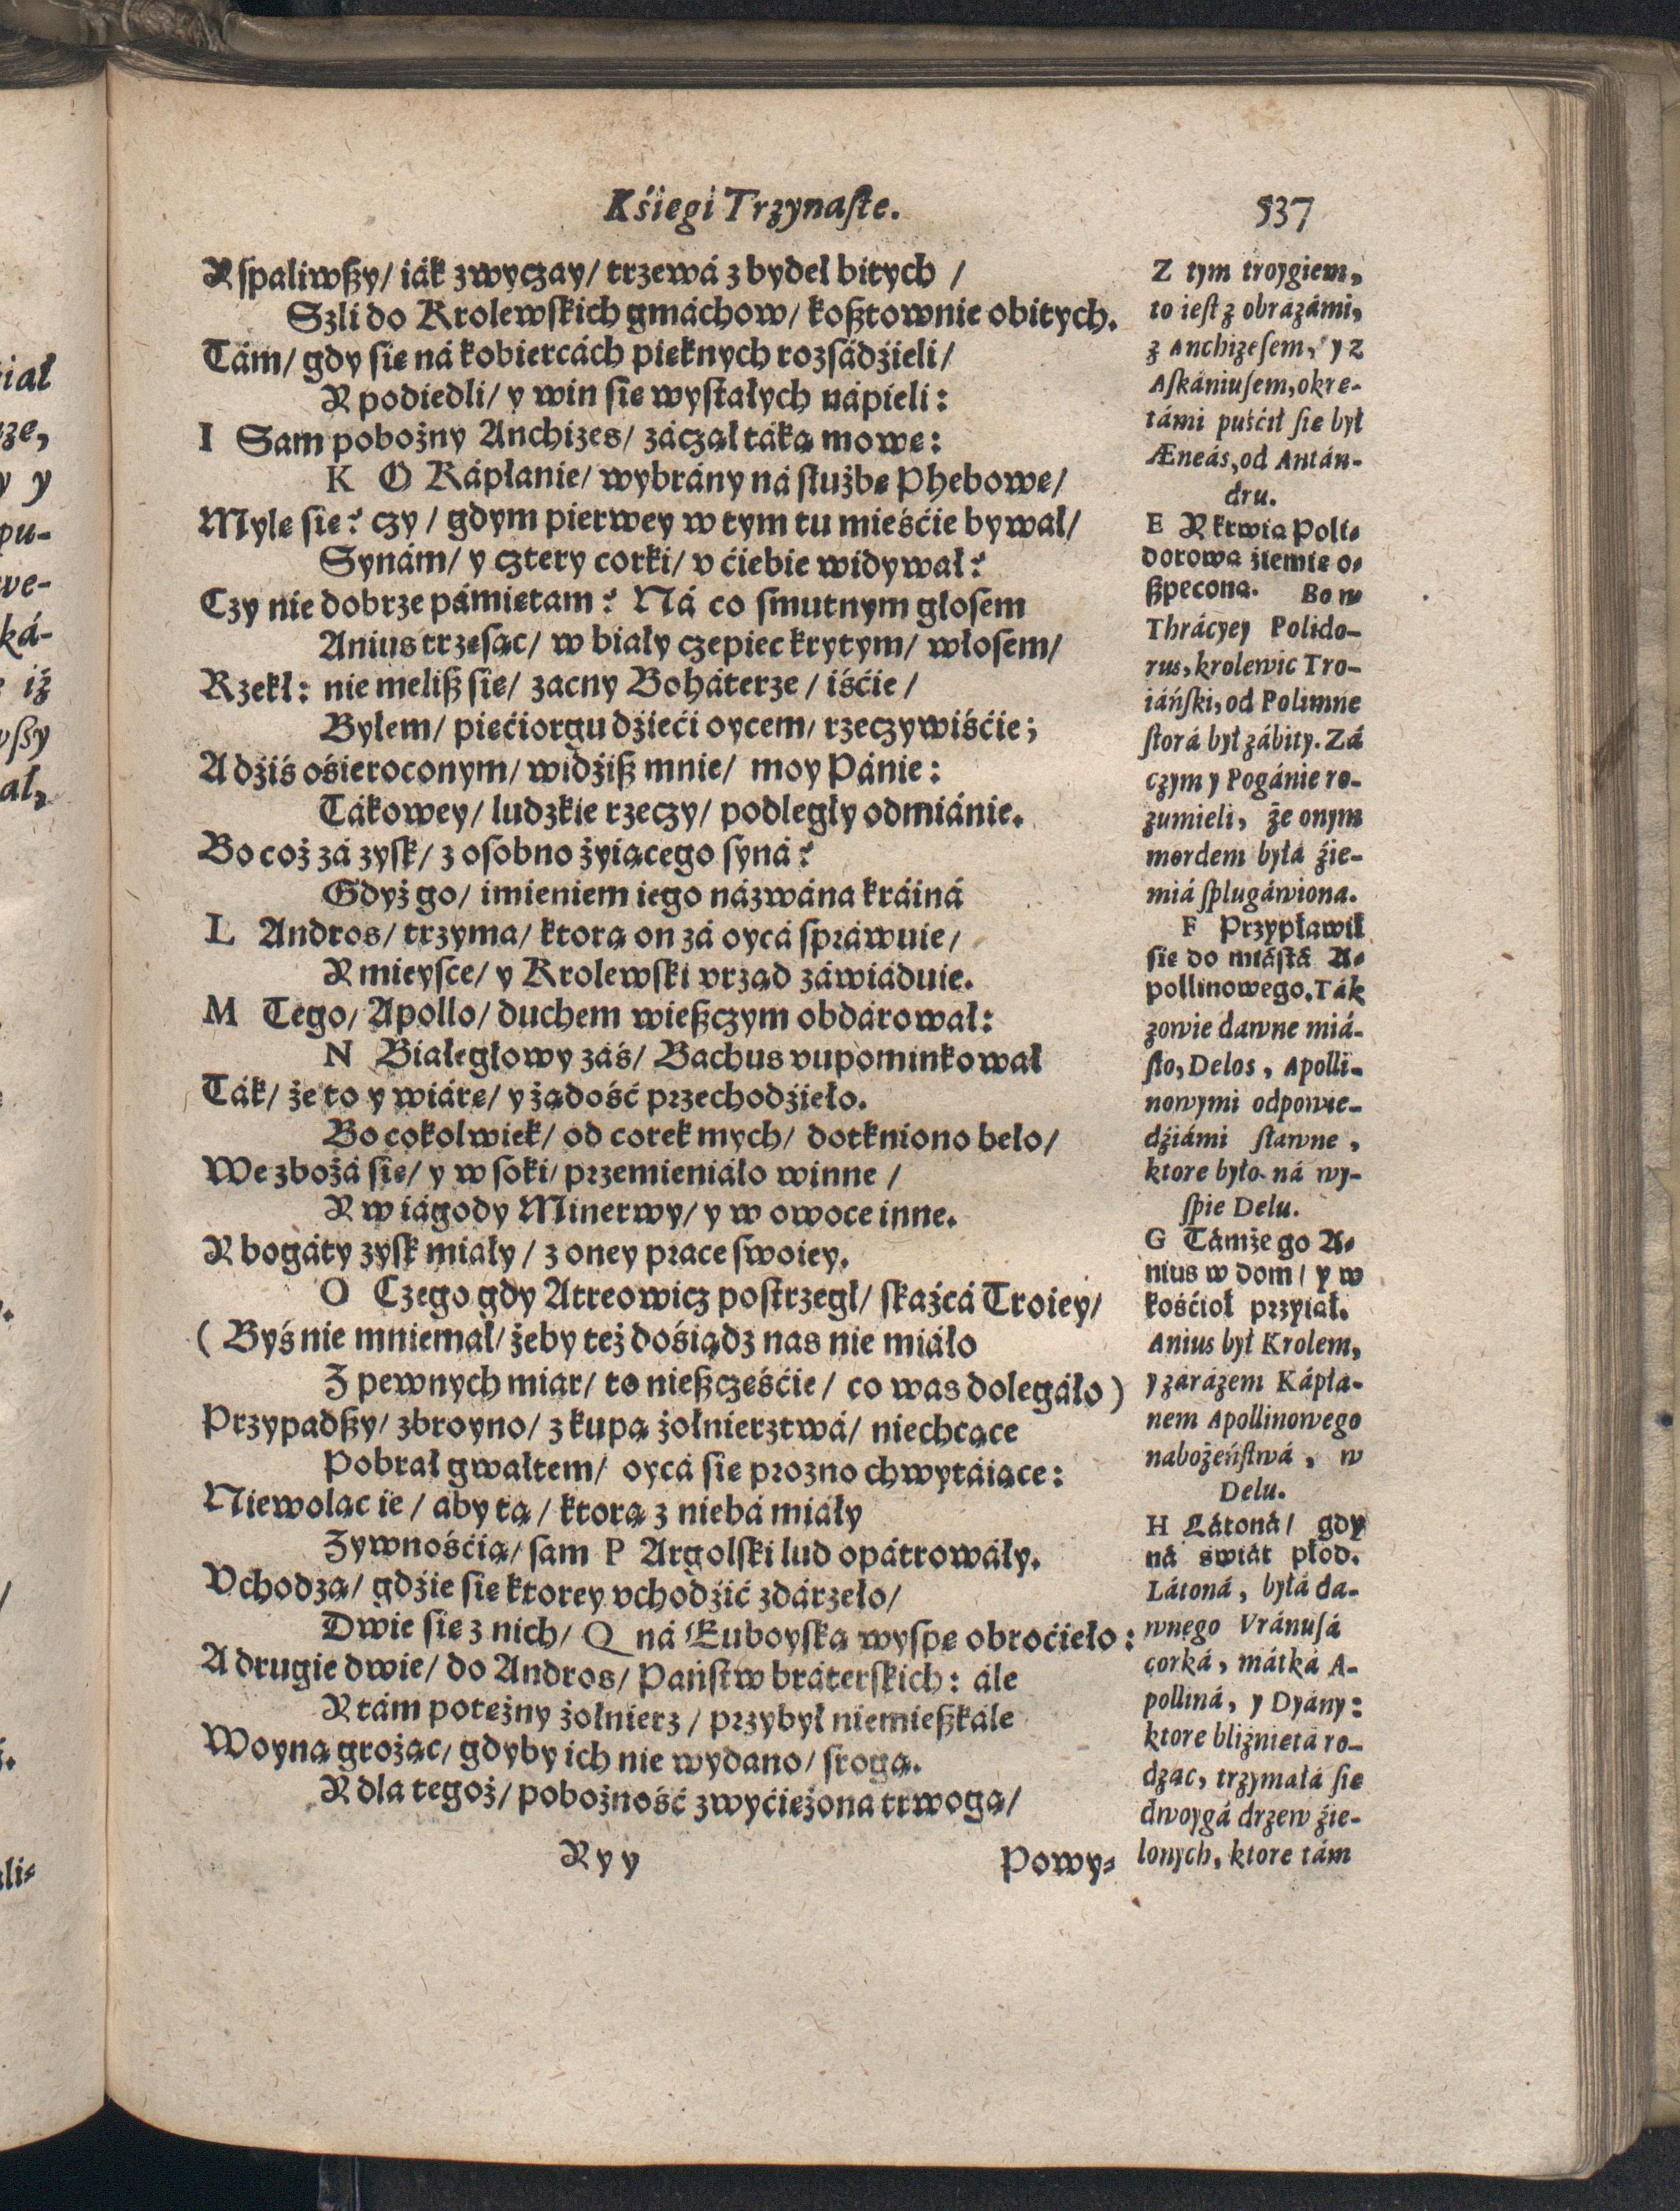 Kśiegi Trzynaſte.
537
Y ſpaliwßy/ iák zwyczay/ trzewá z bydeł bitych /
Szli do Krolewſkich gmáchow/ koßtownie obitych.
Tám/ gdy ſie ná kobiercách pieknych rozſádźieli/
Y podiedli/ y win ſie wyſtałych nápieli:
I Sam pobożny Anchizes/ záczął táką mowe:
K O Kápłanie/ wybrány ná ſłużbe Phebowe/
Myle ſie? czy / gdym pierwey w tym tu mieśćie bywał/
Synám/ y cztery corki/ v ćiebie widywał?
Czy nie dobrze pámietam? Ná co ſmutnym głoſem
Anius trzeſąc/ w biały czepiec krytym/ włoſem/
Rzekł: nie meliß ſie/ zacny Boháterze / iśćie /
Byłem/ piećiorgu dźieći oycem/ rzeczywiśćie;
A dźiś ośieroconym/ widźiß mnie/ moy Pánie:
Tákowey/ ludzkie rzeczy/ podległy odmiánie.
Bo coż zá zyſk/ z oſobno żyiącego ſyná?
Gdyż go/ imieniem iego názwána kráiná
L Andros/ trzyma/ ktorą on zá oycá ſpráwuie/
Y mieyſce/ y Krolewſki vrząd záwiáduie.
M Tego/ Apollo/ duchem wießczym obdárował:
N Białegłowy záś/ Bachus vupominkował
Ták/ że to y wiáre/ y żądość przechodźieło.
Bo cokolwiek/ od corek mych/ dotkniono beło/
We zbożá ſie/ y w ſoki/ przemieniáło winne /
Y w iágody Minerwy/ y w owoce inne.
Y bogáty zyſk miáły/ z oney prace ſwoiey.
O Czego gdy Atreowicz poſtrzegł/ ſkaźcá Troiey/
( Byś nie mniemał/ żeby też dośiądz nas nie miáło
Z pewnych miar/ to nießcześćie/ co was dolegáło)
Przypadßy/ zbroyno/ z kupą żołnierztwá/ niechcące
Pobrał gwałtem/ oycá ſie prozno chwytáiące:
Niewoląc ie / aby tą / ktorą z niebá miáły
Zywnośćią/ ſam P Argolſki lud opátrowáły.
Vchodzą/ gdźie ſie ktorey vchodźić zdárzeło/
Dwie ſie z nich/ Q ná Euboyſką wyſpe obroćieło:
A drugie dwie/ do Andros/ Pańſtw bráterſkich: ále
Y tám poteżny żołnierz/ przybył niemießkále
Woyną grożąc/ gdyby ich nie wydano/ ſrogą.
Y dla tegoż/ pobożność zwyćieżona trwogą/
Yyy
Powy⸗
Z tym troygiem,
to ieſt z obrázámi,
z Anchizeſem, y z
Aſkániuſem, okre-
támi puśćił ſie był
Æneás, od Antán-
dru.
E Y krwią Poli⸗
dorową źiemie o⸗
ßpecona. Bo w
Thrácyey Polido-
rus, krolewic Tro-
iáńſki, od Polimne
ſtorá był zábity. Zá
czym y Pogánie ro-
zumieli, że onym
mordem byłá źie-
miá ſplugáwiona.
F Przypławił
ſie do miáſtá A⸗
pollinowego. Ták
zowie dawne miá-
ſto, Delos, Apolli-
nowymi odpowie-
dźiámi ſławne,
ktore było ná wy-
ſpie Delu.
G Támże go A⸗
nius w dom/ y w
kośćioł przyiął.
Anius był Krolem,
y zárázem Kápła-
nem Apollinowego
nabożeńſtwá, w
Delu.
H Látoná/ gdy
ná świát płod.
Látoná, byłá da-
wnego Vránuſá
corká, mátká A-
polliná, y Dyány:
ktore bliźnietá ro-
dząc, trzymáłá ſie
dwoygá drzew źie-
lonych, ktore tám